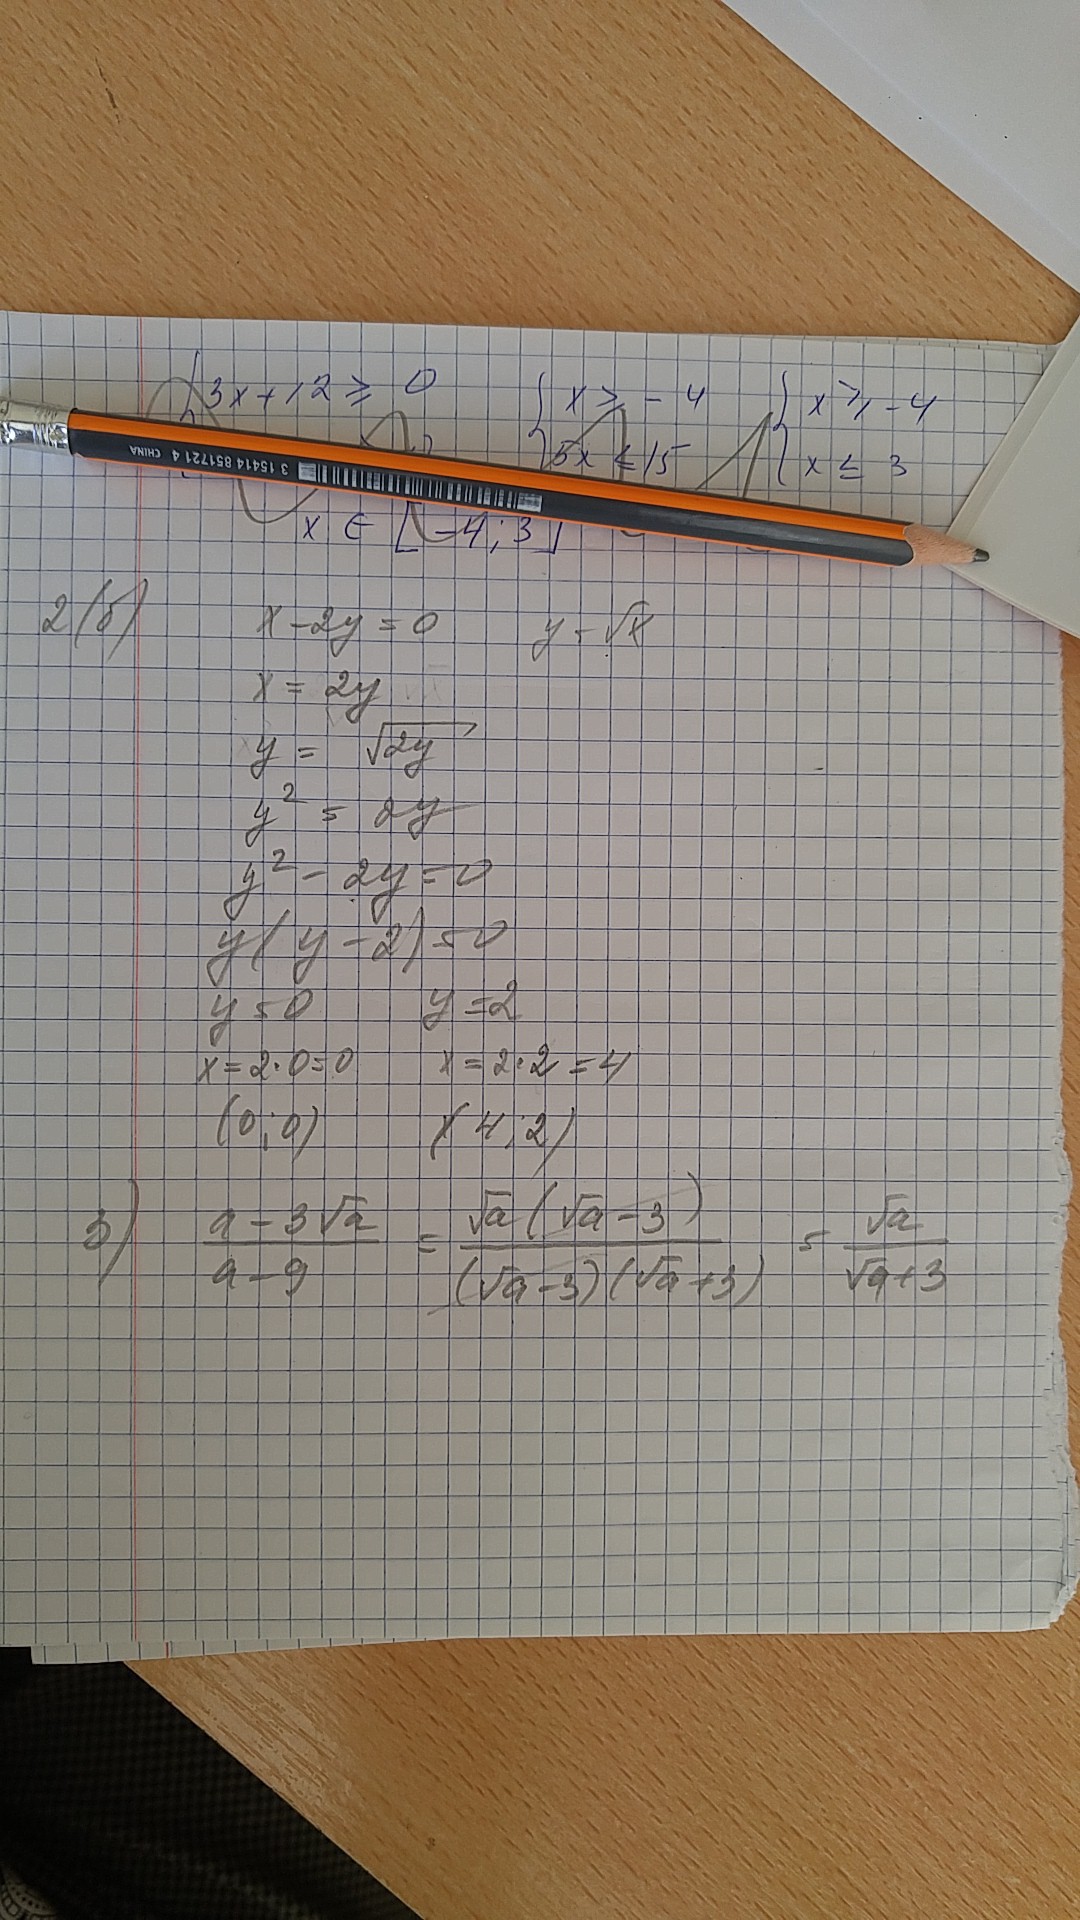 {3x+12 ≥ 0 {x ≥ -4 {x ≥ -4
{5x ≤ 15 {x ≤ 3
3 15414 851721 4 CHINA
x ∈ [-4; 3]
2(б) x-2y=0 y=√x
x = 2y
y = √2y
y² = 2y
y² - 2y = 0
y(y-2)=0
y=0 y=2
x=2·0=0 x=2·2=4
(0;0) (4;2)
3) (a-3√a)/(a-9) = (√a(√a-3))/((√a-3)(√a+3)) = √a/(√a+3)